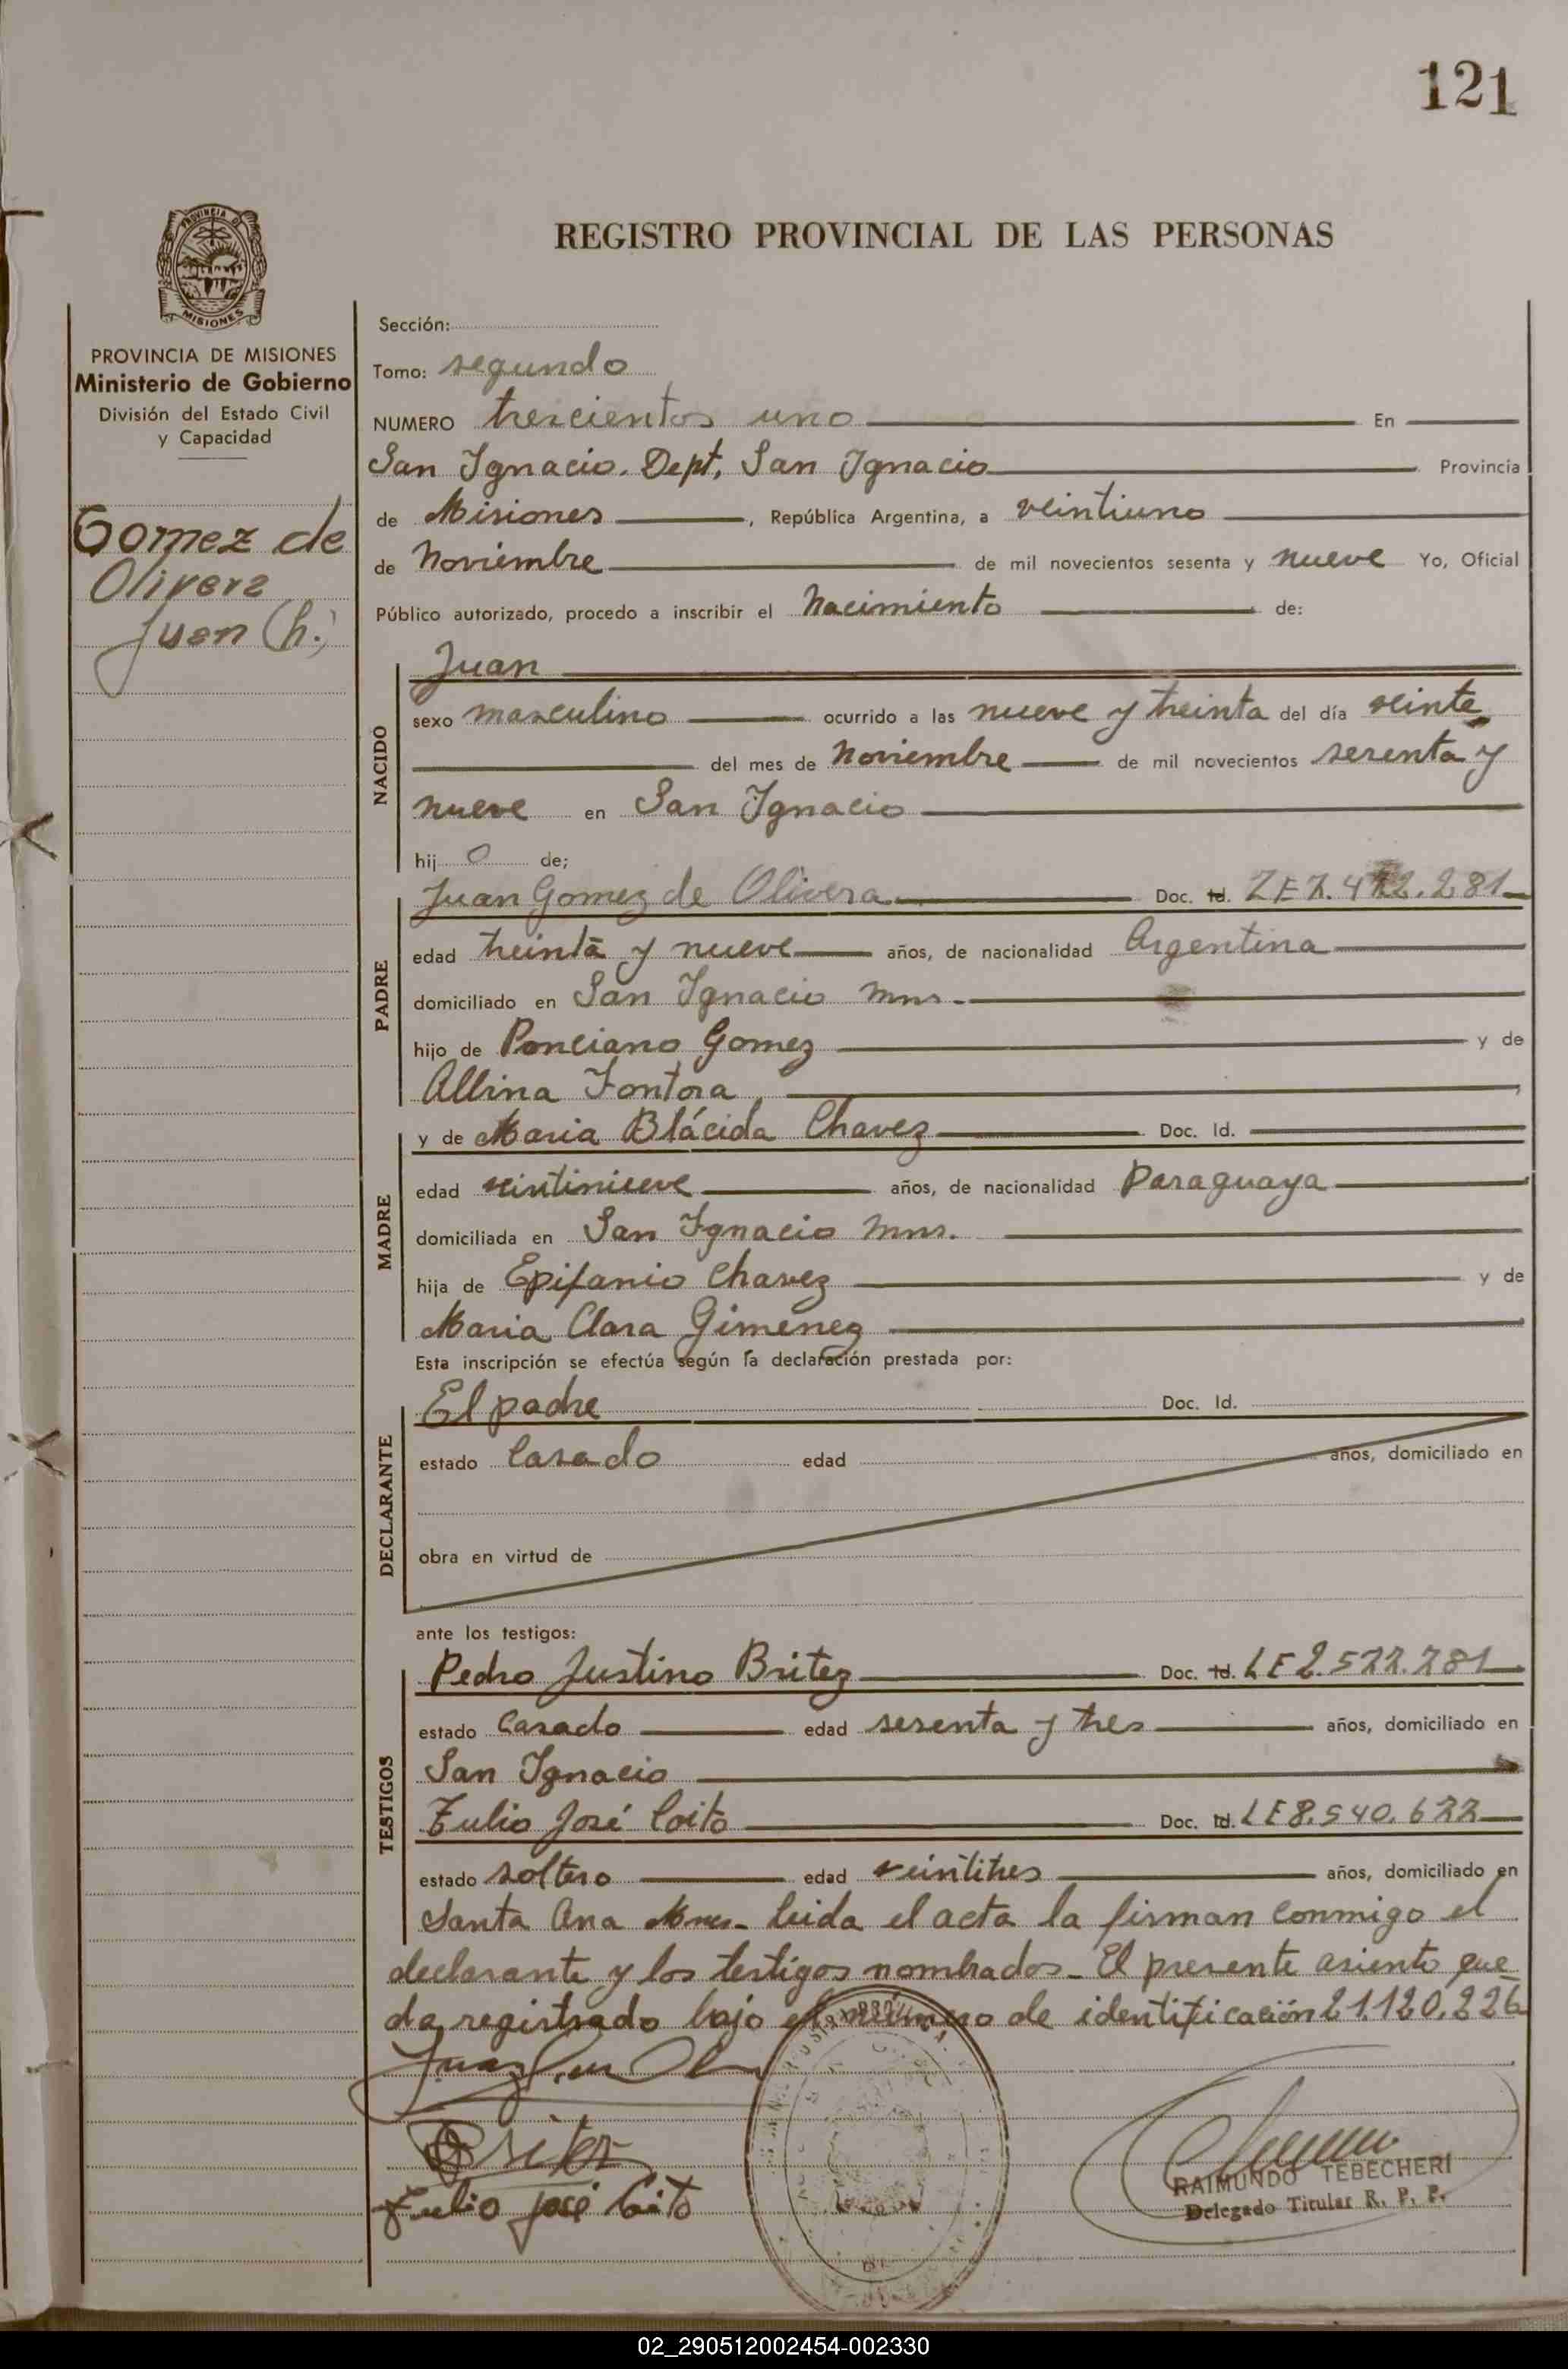 121
REGISTRO PROVINCIAL DE LAS PERSONAS
PROVINCIA DE
MISIONES
PROVINCIA DE MISIONES
Ministerio de Gobierno
División del Estado Civil
y Capacidad
Gomez de
Olivera
Juan (h.)
Sección:
Tomo: segundo
NUMERO trescientos uno En
San Ignacio. Dept. San Ignacio Provincia
de Misiones, República Argentina, a veintiuno
de Noviembre de mil novecientos sesenta y nueve Yo, Oficial
Público autorizado, procedo a inscribir el Nacimiento de:
NACIDO
Juan
sexo masculino ocurrido a las nueve y treinta del día veinte
del mes de Noviembre de mil novecientos sesenta y
nueve en San Ignacio
hijo de;
PADRE
Juan Gomez de Olivera Doc. Id.
edad treinta y nueve años, de nacionalidad Argentina
domiciliado en San Ignacio Mns.
hijo de Ponciano Gomez y de
Albina Fontora
MADRE
y de Maria Blácida Chavez Doc. Id.
edad veintinueve años, de nacionalidad Paraguaya
domiciliada en San Ignacio Mns.
hija de Epifanio Chavez y de
Maria Clara Gimenez
Esta inscripción se efectúa según la declaración prestada por:
DECLARANTE
El padre Doc. Id.
estado Casado edad años, domiciliado en
obra en virtud de
ante los testigos:
TESTIGOS
Pedro Justino Britez Doc. Id. LE 2.577.781
estado Casado edad sesenta y tres años, domiciliado en
San Ignacio
Tulio José Coito Doc. Id. LE 8.540.677
estado soltero edad veintitres años, domiciliado en
Santa Ana Mnes. leida el acta la firman conmigo el
declarante y los testigos nombrados. El presente asiento que
da registrado bajo el número de identificación 21.120.226
Britez
Tulio José Coito
RAIMUNDO TEBECHERI
Delegado Titular R. P. P.
02_290512002454-002330